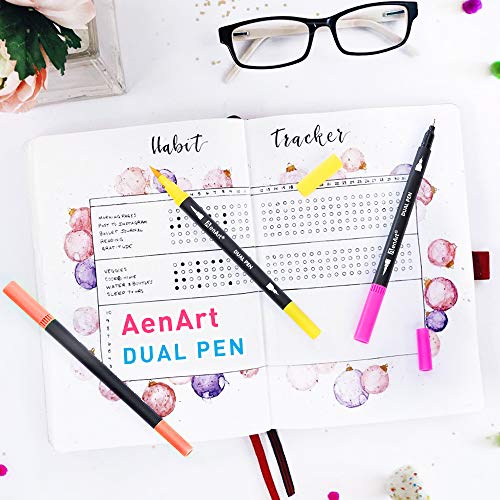 Habit Tracker
MORNING PAGES
POST TO INSTAGRAM
BULLET JOURNAL
READING
GRATITUDE
VEGGIES
EXERCISE
WATER 8 BOTTLES
SLEEP 7+ HRS
AenArt
DUAL PEN
AenArt® DUAL PEN
AenArt® DUAL PEN